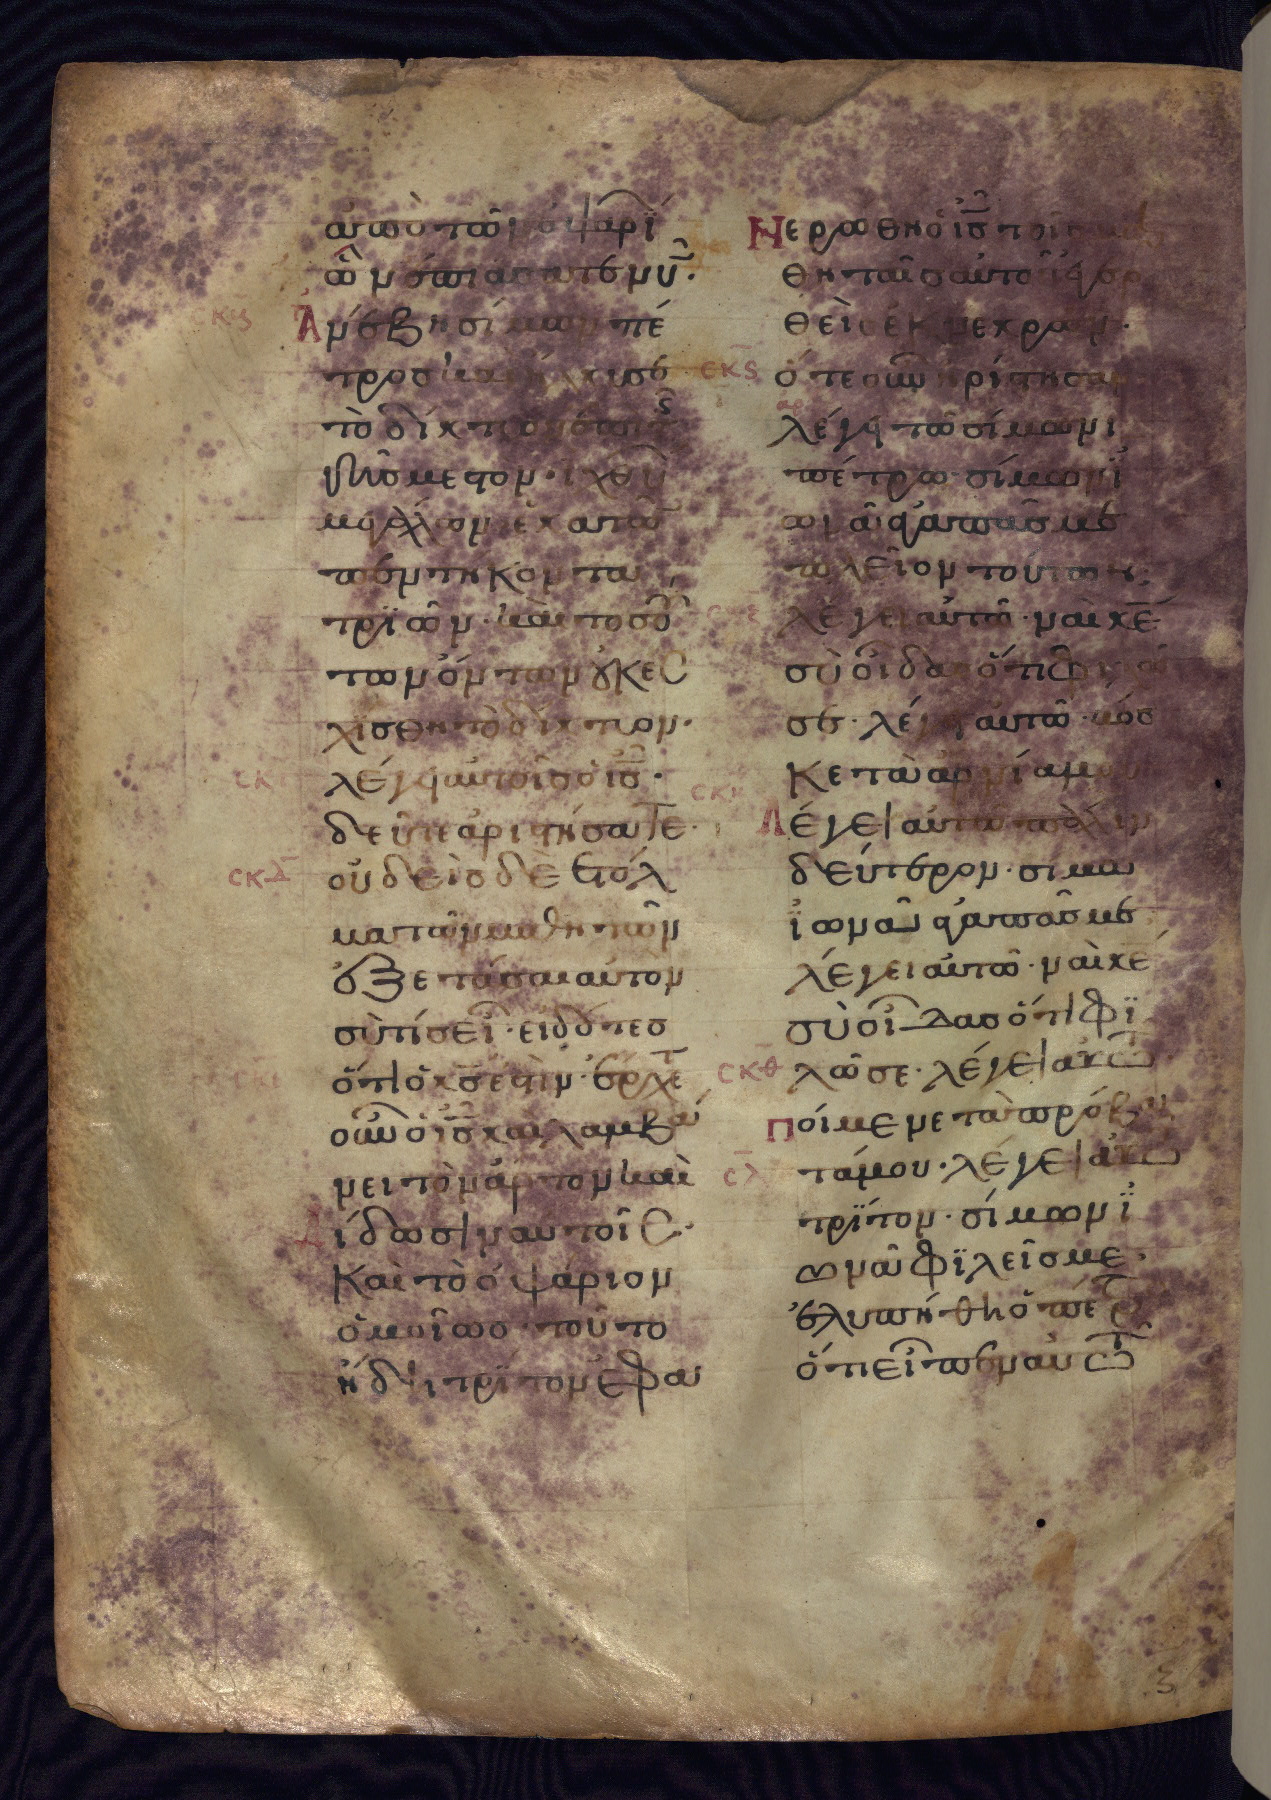 ἀπὸ τῶν ὀψαρί
ὧν ἐπιάσατε νῦν·
Ἀνέβη σίμων πέ
τροσ καὶ εἵλκυσε
τὸ δίκτυον ἐπὶ τῆς
γῆσ μεστὸν· ἰχθύ
μεγάλων ἑκατὸν
πεντηκοντα
τριῶν· καὶ τοσού
των ὄντων οὐκ ἐσ
χίσθη τὸ δίκτυον·
λέγει αὐτοῖσ ὁ ισ·
δεῦτε ἀριστήσατε·
οὐδεὶσ δὲ ἐτόλ
μα τῶν μαθητῶν
ἐξετάσαι αὐτὸν
σὺ τίσ εἶ· εἰδότεσ
ὅτι ὁ κσ ἐστὶν· ἔρχετ
οὖν ὁ ισ καὶ λαμβά
νει τὸν ἄρτον καὶ
δίδωσιν αυτοῖσ·
Καὶ τὸ ὀψάριον
ὁμοίωσ· τοῦτο
ἤδη τρίτον ἐφα
Νερώθη ὁ ισ τοῖσ μαθη
θηταῖσ αὐτοῦ ἐγερ
θεὶσ ἐκ νεκρων·
ὅτε οὖν ἠρίστησαν
λέγει τῶ σίμωνι
πέτρω· σίμων ἰ
ωνᾶ ἀγαπᾶσ με
πλεῖον τούτων;
λέγει αὐτῶ· ναὶ κε
σὺ οἶδασ ὅτι φιλῶ
σε· λέγει αὐτῶ· βόσ
κε τὰ ἀρνία μου
Λέγει αὐτῶ πάλιν
δεύτερον· σιμων
ἰωνᾶ ἀγαπᾶσ με
λέγει αὐτῶ· ναὶ κε
σὺ οἶδασ ὅτι φι
λῶ σε· λέγει αὐτῶ
Ποίμενε τὰ πρόβα
τά μου· λέγει αὐτῶ
τρίτον· σίμων ἰ
ωνᾶ φιλεῖσ με·
ἐλυπήθη ὁ πέτρ
ὅτι εἶπεν αὐτῶ
σκβ
σκ
σκδ
σκε
σκϛ
σκη
σκθ
σλ